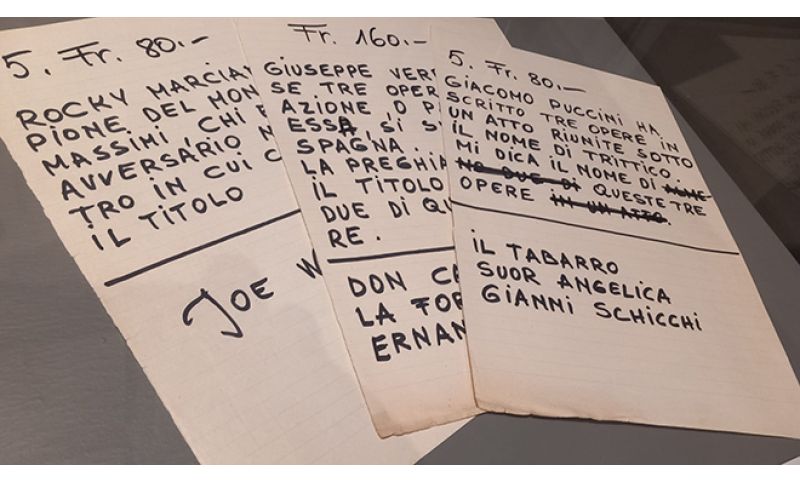 5. Fr. 80.-
ROCKY MARCIA
PIONE DEL MON
MASSIMI, CHI
AVVERSARIO N
TRO IN CUI C
IL TITOLO
JOE W
Fr. 160.-
GIUSEPPE VER
SE TRE OPER
AZIONE, O P
ESSA, SI S
SPAGNA.
LA PREGHIA
IL TITOLO
DUE DI QU
RE.
DON CA
LA FOR
ERNAN
5. Fr. 80.-
GIACOMO PUCCINI HA
SCRITTO TRE OPERE IN
UN ATTO RIUNITE SOTTO
IL NOME DI TRITTICO.
MI DICA IL NOME DI ALME
NO DUE DI QUESTE TRE
OPERE IN UN ATTO.
IL TABARRO
SUOR ANGELICA
GIANNI SCHICCHI